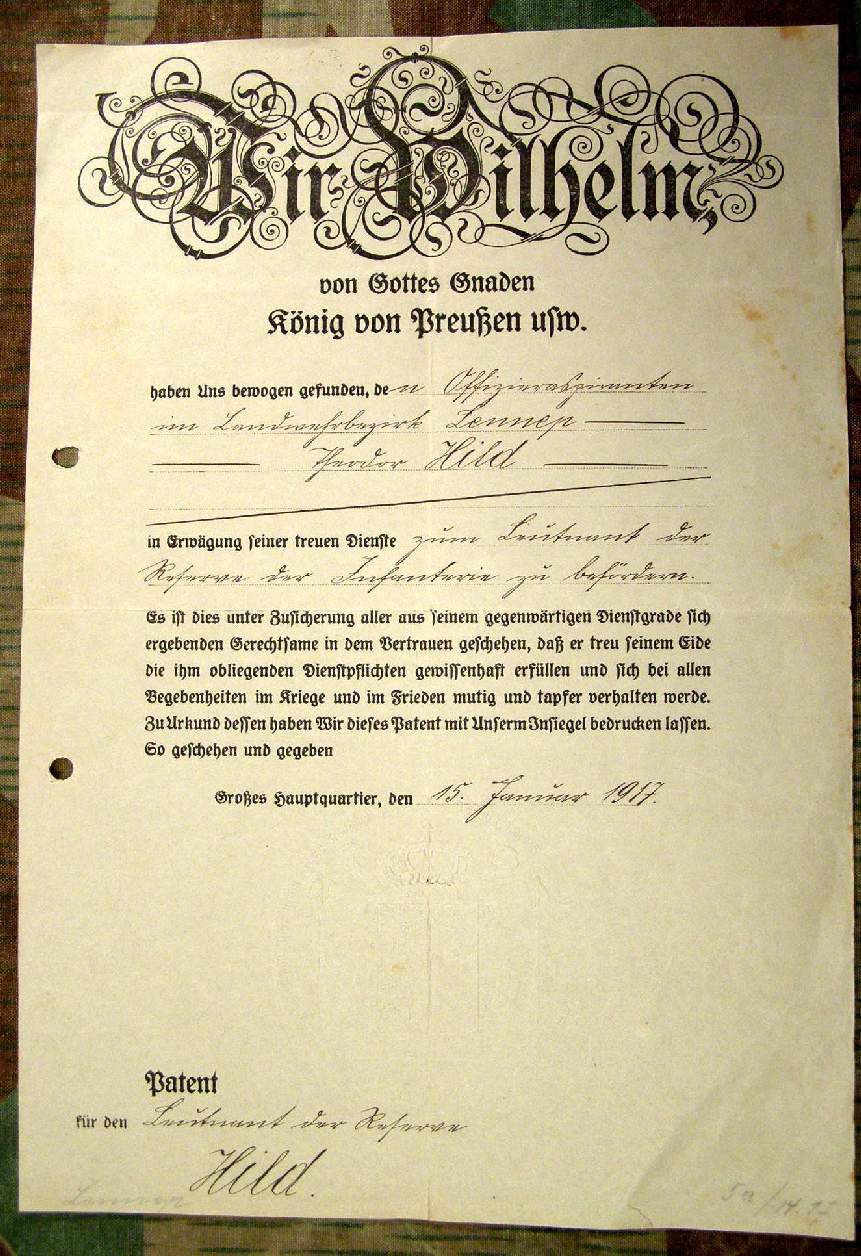 Wir Wilhelm,
von Gottes Gnaden
König von Preußen usw.
haben Uns bewogen gefunden, den Offizieraspiranten
im Landwehrbezirk Lennep
Theodor Hild
in Erwägung seiner treuen Dienste zum Leutnant der
Reserve der Infanterie zu befördern.
Es ist dies unter Zusicherung aller aus seinem gegenwärtigen Dienstgrade sich
ergebenden Gerechtsame in dem Vertrauen geschehen, daß er treu seinem Eide
die ihm obliegenden Dienstpflichten gewissenhaft erfüllen und sich bei allen
Begebenheiten im Kriege und im Frieden mutig und tapfer verhalten werde.
Zu Urkund dessen haben Wir dieses Patent mit Unserm Insiegel bedrucken lassen.
So geschehen und gegeben
Großes Hauptquartier, den 15. Januar 1917.
Patent
für den Leutnant der Reserve
Hild.
Lennep